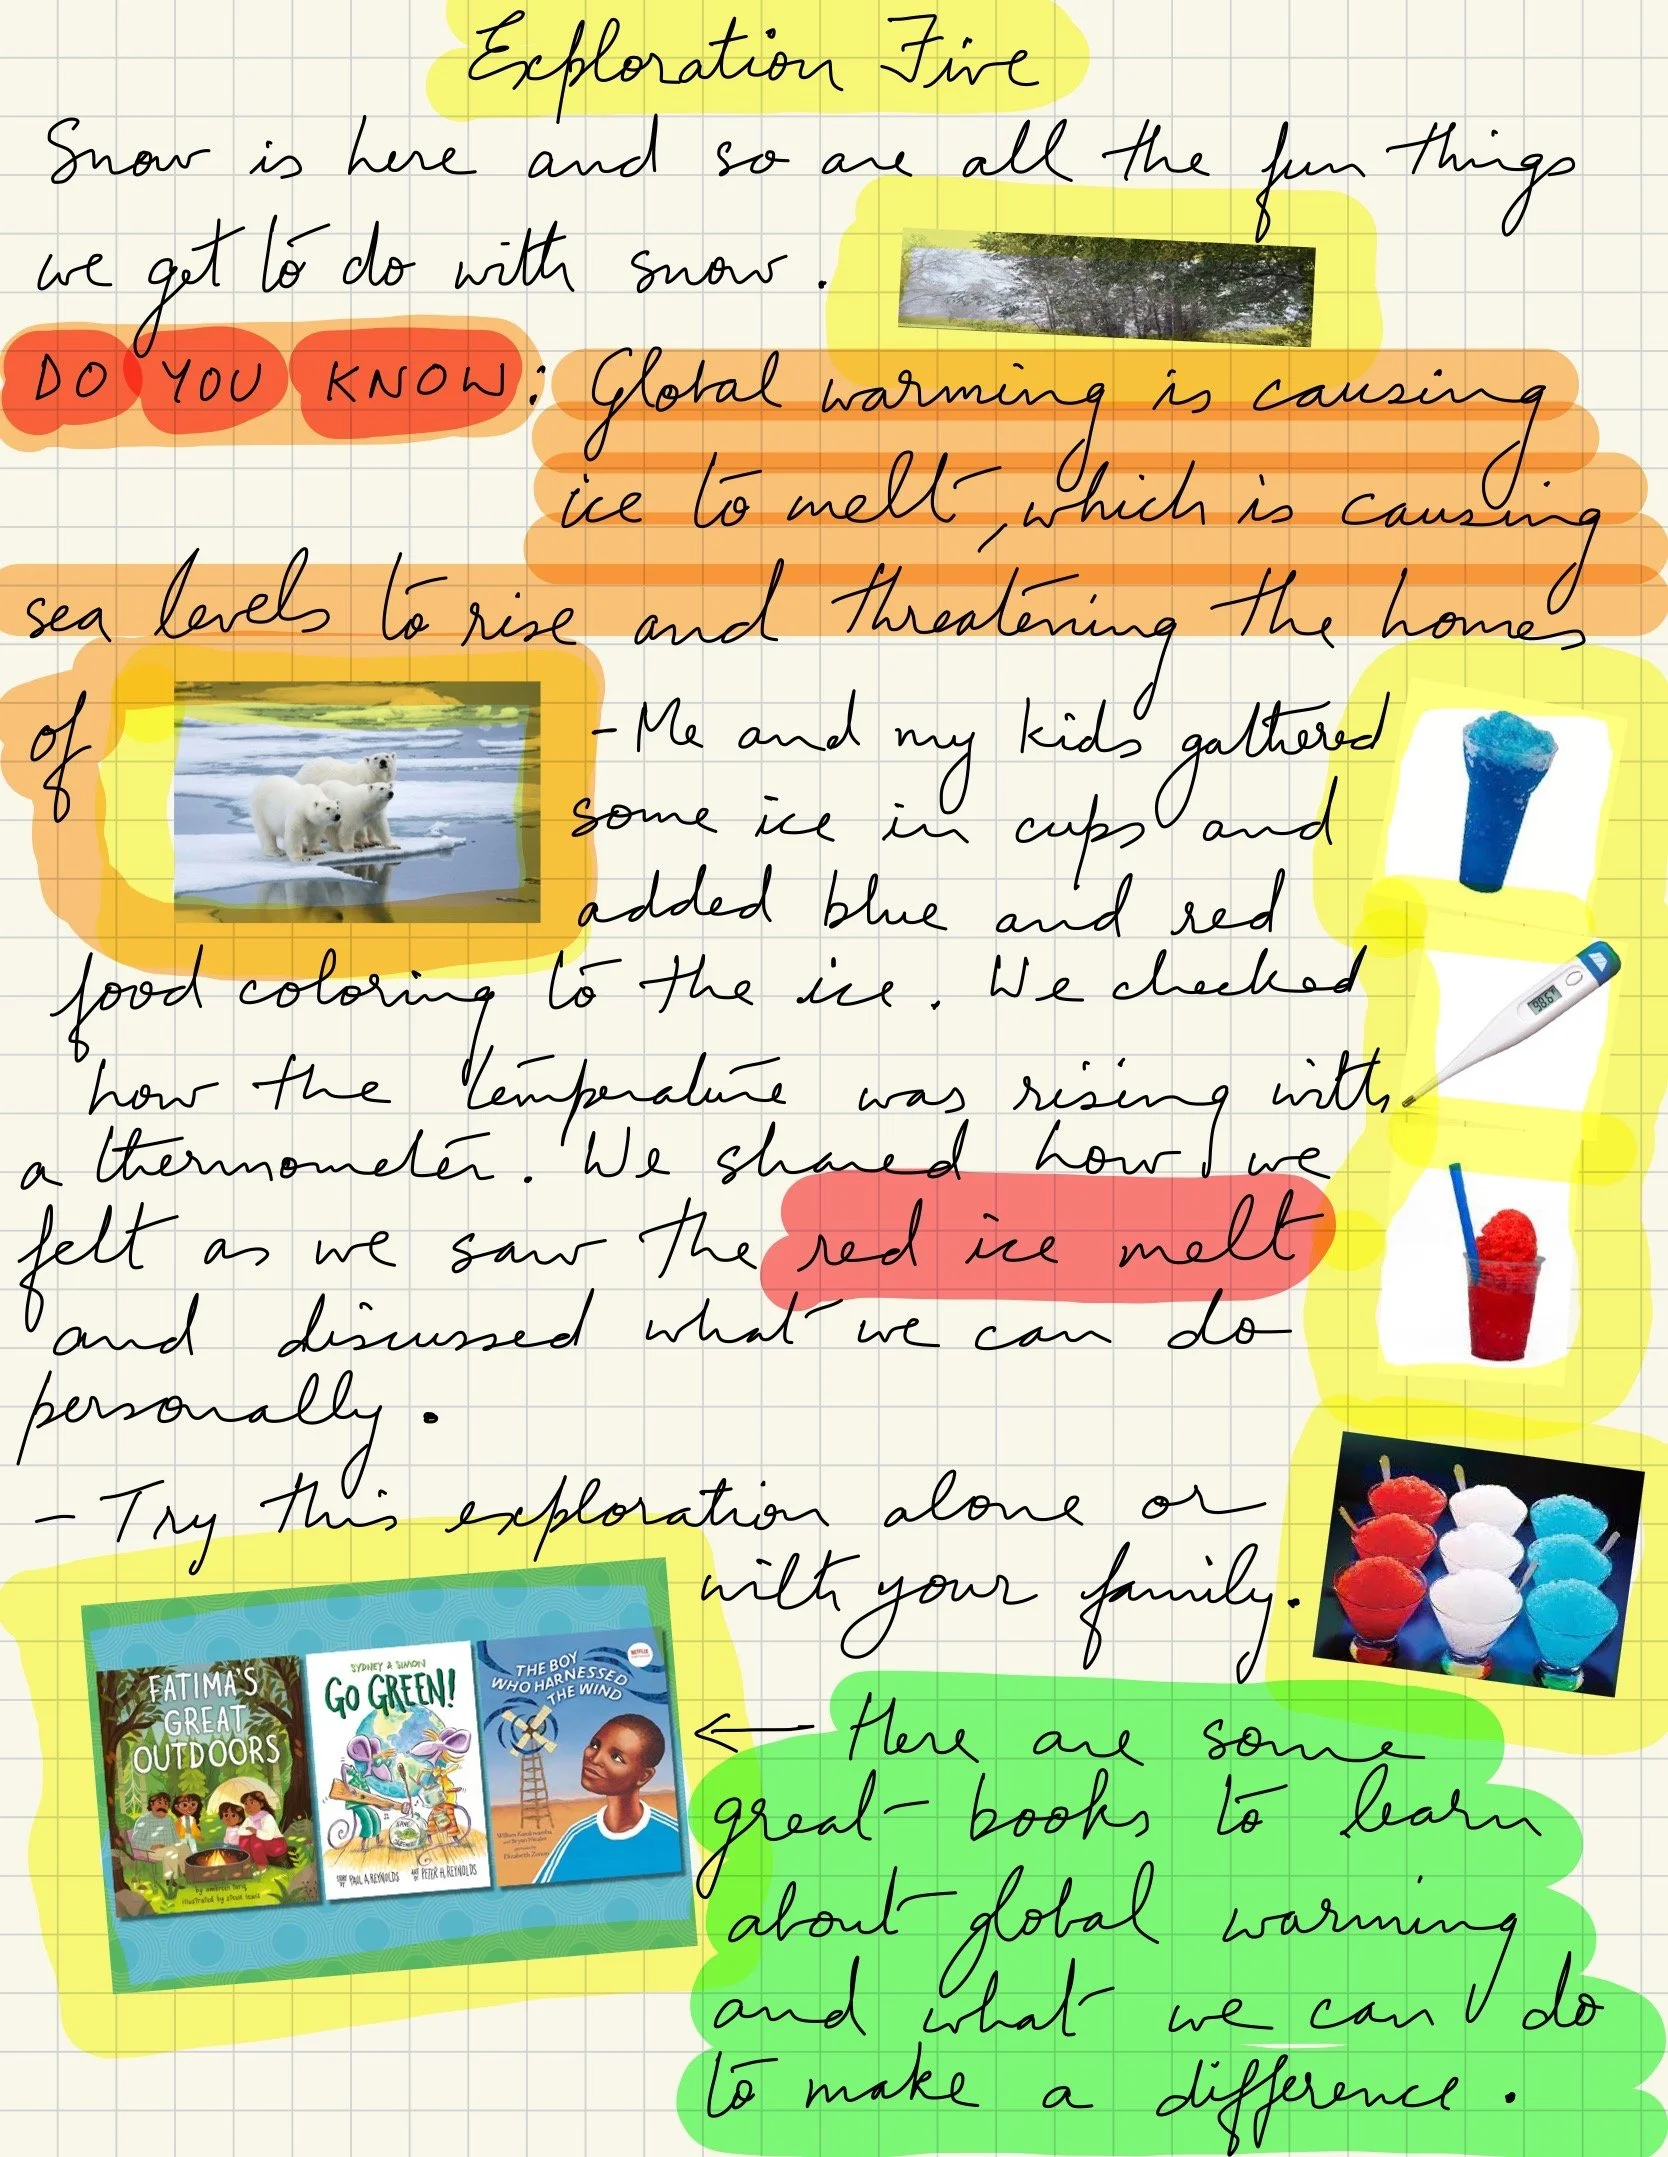 Exploration Five
Snow is here and so are all the fun things
we get to do with snow.
DO YOU KNOW: Global warming is causing
ice to melt, which is causing
sea levels to rise and threatening the homes
of
- Me and my kids gathered
some ice in cups and
added blue and red
food coloring to the ice. We checked
how the temperature was rising with
a thermometer. We shared how we
felt as we saw the red ice melt
and discussed what we can do
personally.
- Try this exploration alone or
with your family.
98.6°
FATIMA'S
GREAT
OUTDOORS
by ambreen tariq
illustrated by stevie lewis
SYDNEY & SIMON
GO GREEN!
STORY BY PAUL A. REYNOLDS ART BY PETER H. REYNOLDS
NETFLIX
THE BOY
WHO HARNESSED
THE WIND
William Kamkwamba
and Bryan Mealer
Elizabeth Zunon
← Here are some
great books to learn
about global warming
and what we can do
to make a difference.